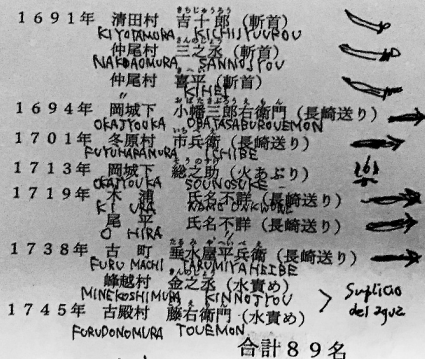 きちじゅうろう
1691年 清田村 吉十郎（斬首）
KIYOTAMURA KICHIJYUUROU
さんのじょう
仲尾村 三之丞（斬首）
NAKAOMURA SANNOJYOU
仲尾村 喜平（斬首）
〃 KIHEI
おばたさぶろうえもん
1694年 岡城下 小幡三郎右衛門（長崎送り）
OKAJYOUKA OBATASABUROUEMON
いち
1701年 冬原村 市兵衛（長崎送り）
FUYUHARAMURA ICHIBE
1713年 岡城下 総之助（火あぶり）
OKAJYOUKA SOUNOSUKE
1719年 木浦 氏名不詳（長崎送り）
KI URA NAME UNKNOWN
尾平 氏名不詳（長崎送り）
O HIRA 〃
たるみやへいべえ
1738年 古町 垂水屋平兵衛（長崎送り）
FURU MACHI TARUMIYAHEIBE
峰越村 金之丞（水責め）
MINEKOSHIMURA KINNOJYOU
Suplicio
del agua
1745年 古殿村 藤右衛門（水責め）
FURUDONOMURA TOUEMON
合計89名